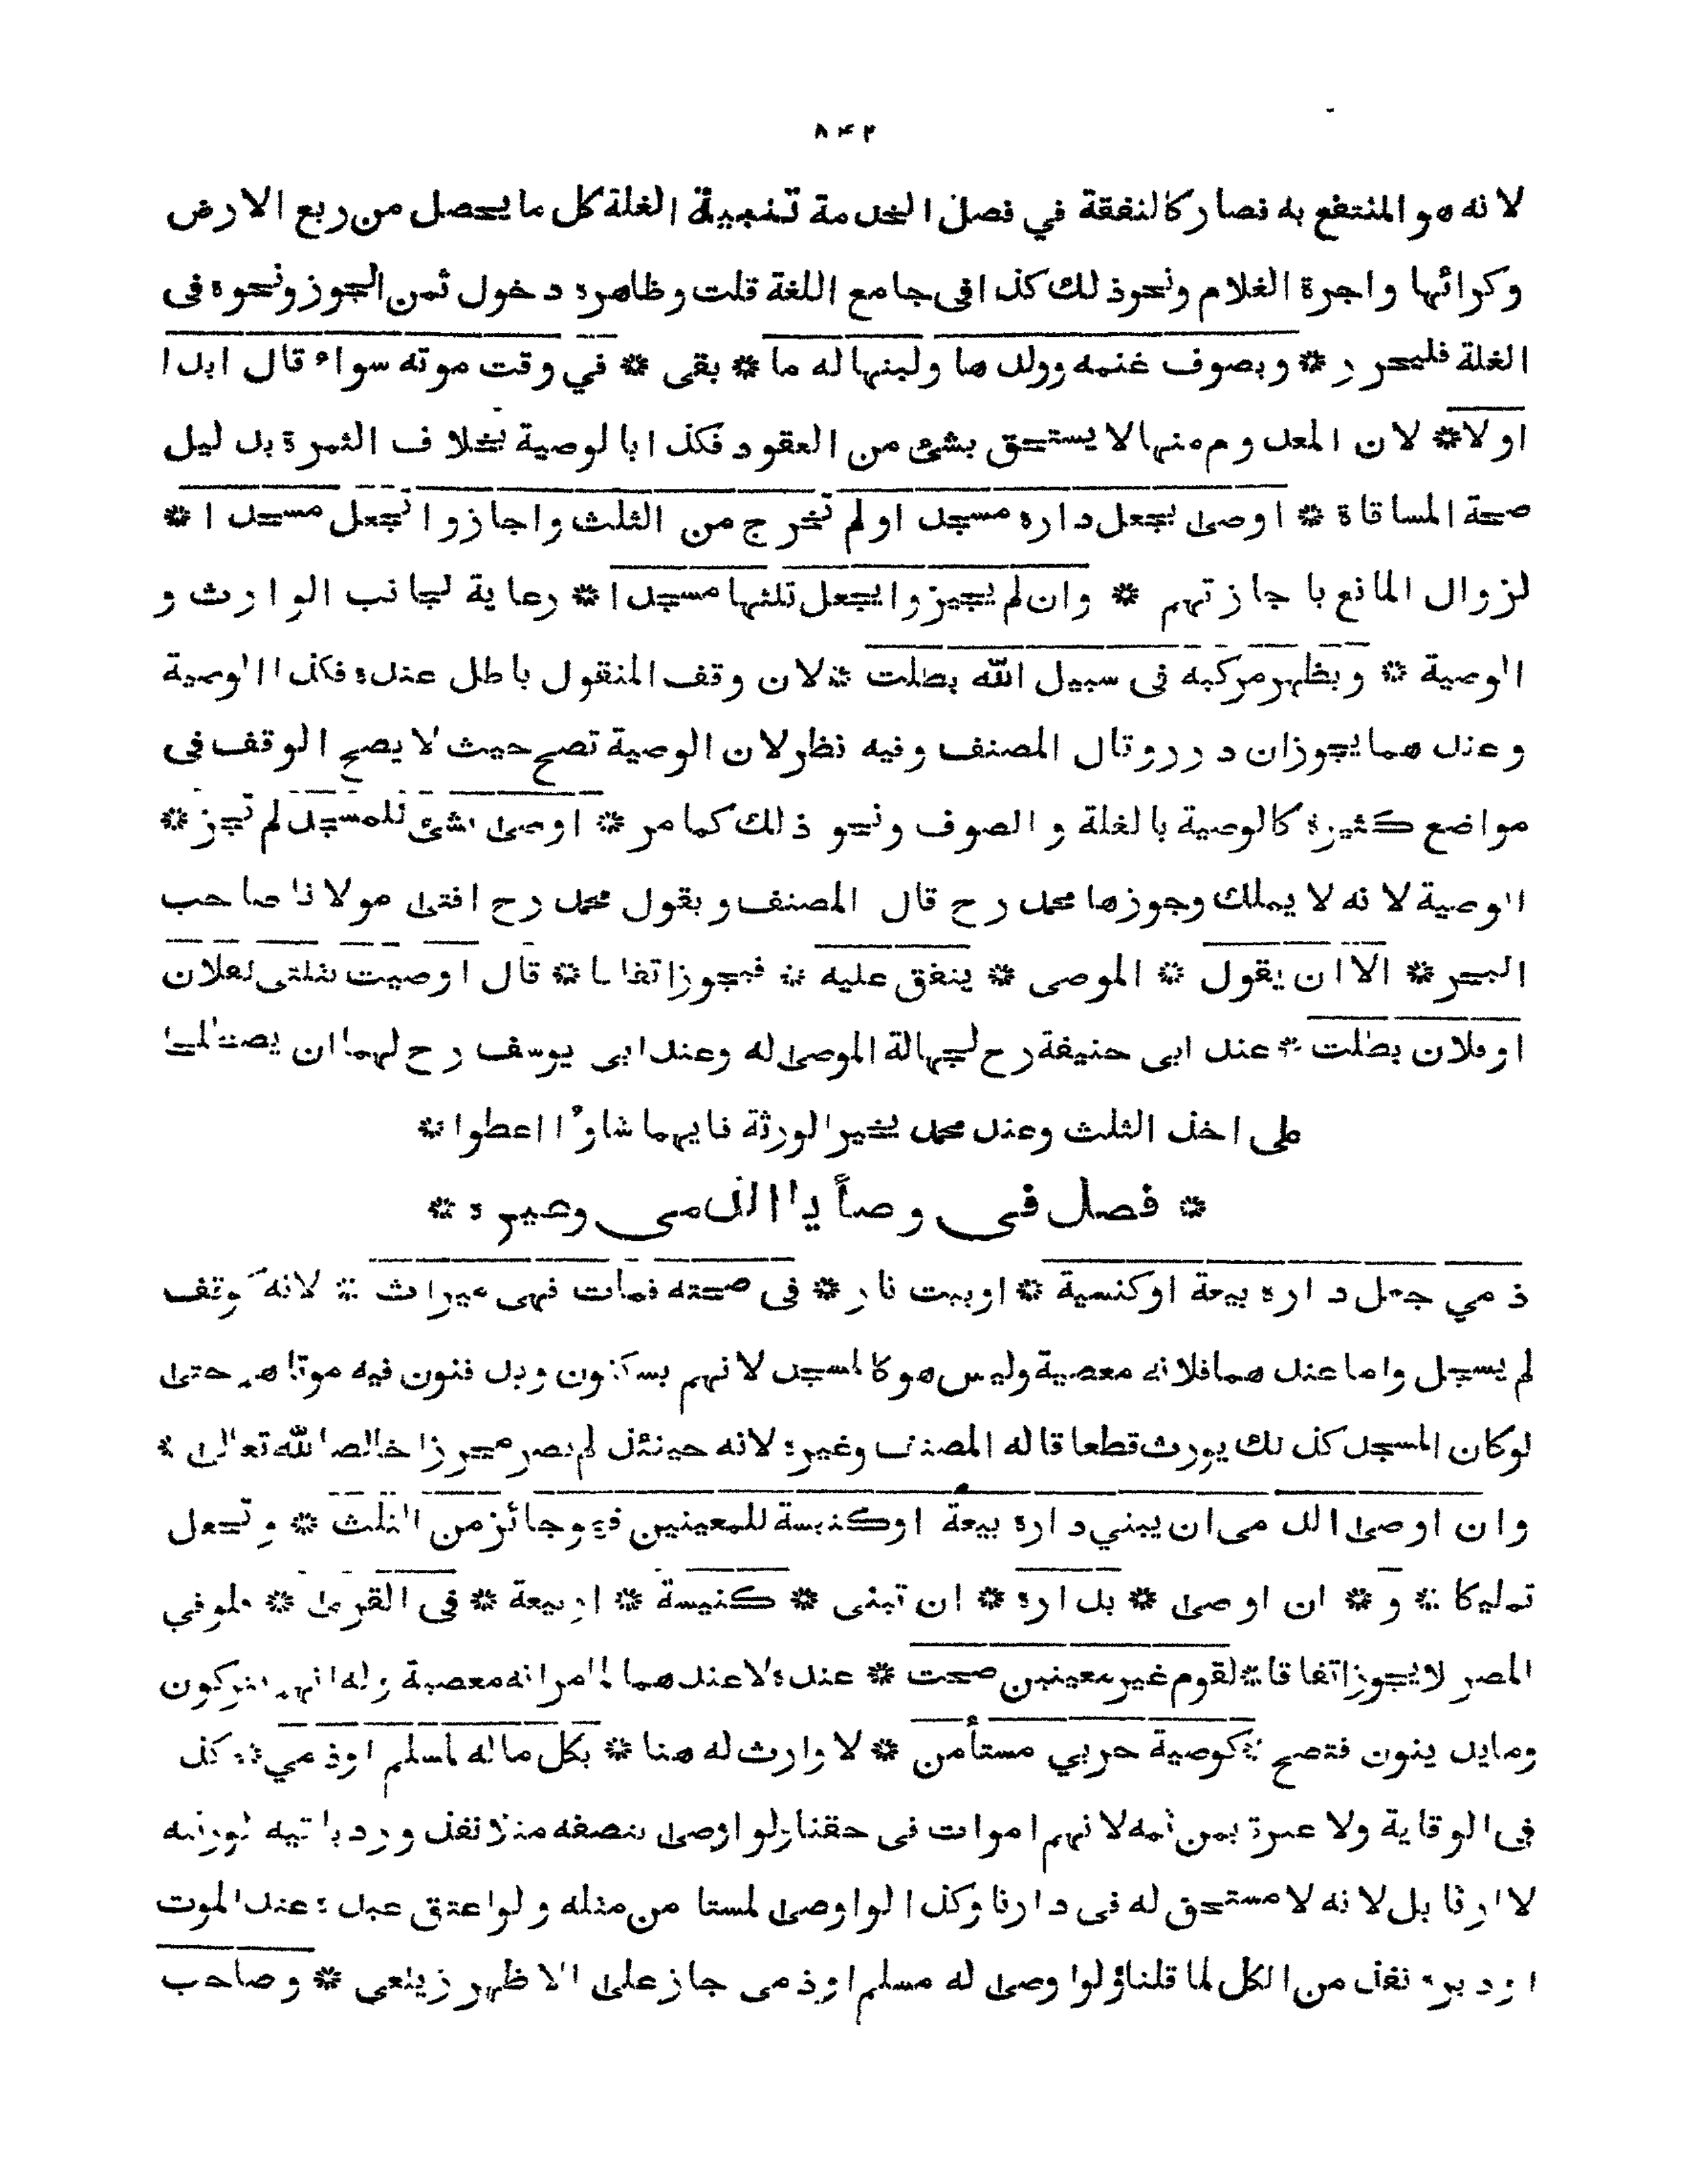 ٨٤٢
لانه هو المنتفع به فصار كالنفقة في فصل الخدمة تنبيه الغلة كل ما يحصل من ريع الارض
وكرائها واجرة الغلام ونحو ذلك كذا في جامع اللغة قلت وظاهره دخول ثمن الجوز ونحوه في
الغلة فليحرر * وبصوف غنمه وولدها ولبنها له ما * بقى * في وقت موته سواء قال ابدا
اولا * لان المعدوم منها لا يستحق بشئ من العقود فكذا بالوصية بخلاف الثمرة بدليل
صحة المساقاة * اوصى بجعل داره مسجدا ولم تخرج من الثلث واجازوا تجعل مسجدا *
لزوال المانع باجازتهم * وان لم يجيزوا يجعل ثلثها مسجدا * رعاية لجانب الوارث و
الوصية * وبظهر مركبه فى سبيل الله بطلت * لان وقف المنقول باطل عنده فكذا الوصية
وعندهما يجوزان درر وقال المصنف وفيه نظر لان الوصية تصح حيث لا يصح الوقف فى
مواضع كثيرة كالوصية بالغلة و الصوف ونحو ذلك كما مر * اوصى بشئ للمسجد لم تجز *
الوصية لانه لا يملك وجوزها محمد رح قال المصنف وبقول محمد رح افتى مولانا صاحب
البحر * الا ان يقول * الموصى * ينفق عليه * فيجوز اتفاقا * قال اوصيت بثلثى لفلان
او فلان بطلت * عند ابى حنيفة رح لجهالة الموصى له وعند ابى يوسف رح لهما ان يصطلحا
على اخذ الثلث وعند محمد يخير الورثة فايهما شاؤا اعطوا *
* فصل فى وصايا الذمى وغيره *
ذمي جعل داره بيعة او كنسية * او بيت نار * فى صحته فمات فهى ميراث * لانه كوقف
لم يسجل واما عندهما فلانه معصية وليس هو كالمسجد لانهم يسكنون ويدفنون فيه موتاهم حتى
لو كان المسجد كذلك يورث قطعا قاله المصنف وغيره لانه حينئذ لم يصر محرزا خالصا لله تعالى *
وان اوصى الذمى ان يبني داره بيعة او كنيسة للمعينين فهو جائز من الثلث * وتجعل
تمليكا * و * ان اوصى * بداره * ان تبنى * كنيسة * او بيعة * فى القرى * فلو فى
المصر لا يجوز اتفاقا * لقوم غير معينين صحت * عنده لا عندهما لما مر انه معصية وله انهم يتركون
وما يدينون فتصح * كوصية حربي مستأمن * لا وارث له هنا * بكل ماله لمسلم او ذمي * كذا
فى الوقاية ولا عبرة بمن ثمه لانهم اموات فى حقنا ولو اوصى بنصفه مثلا نفذ ورد باقيه لورثته
لا ارثا بل لانه لا مستحق له فى دارنا وكذا لو اوصى لمستامن مثله ولو اعتق عبده عند الموت
او دبره نفذ من الكل لما قلنا ولو اوصى له مسلم او ذمى جاز على الاظهر زيلعى * وصاحب